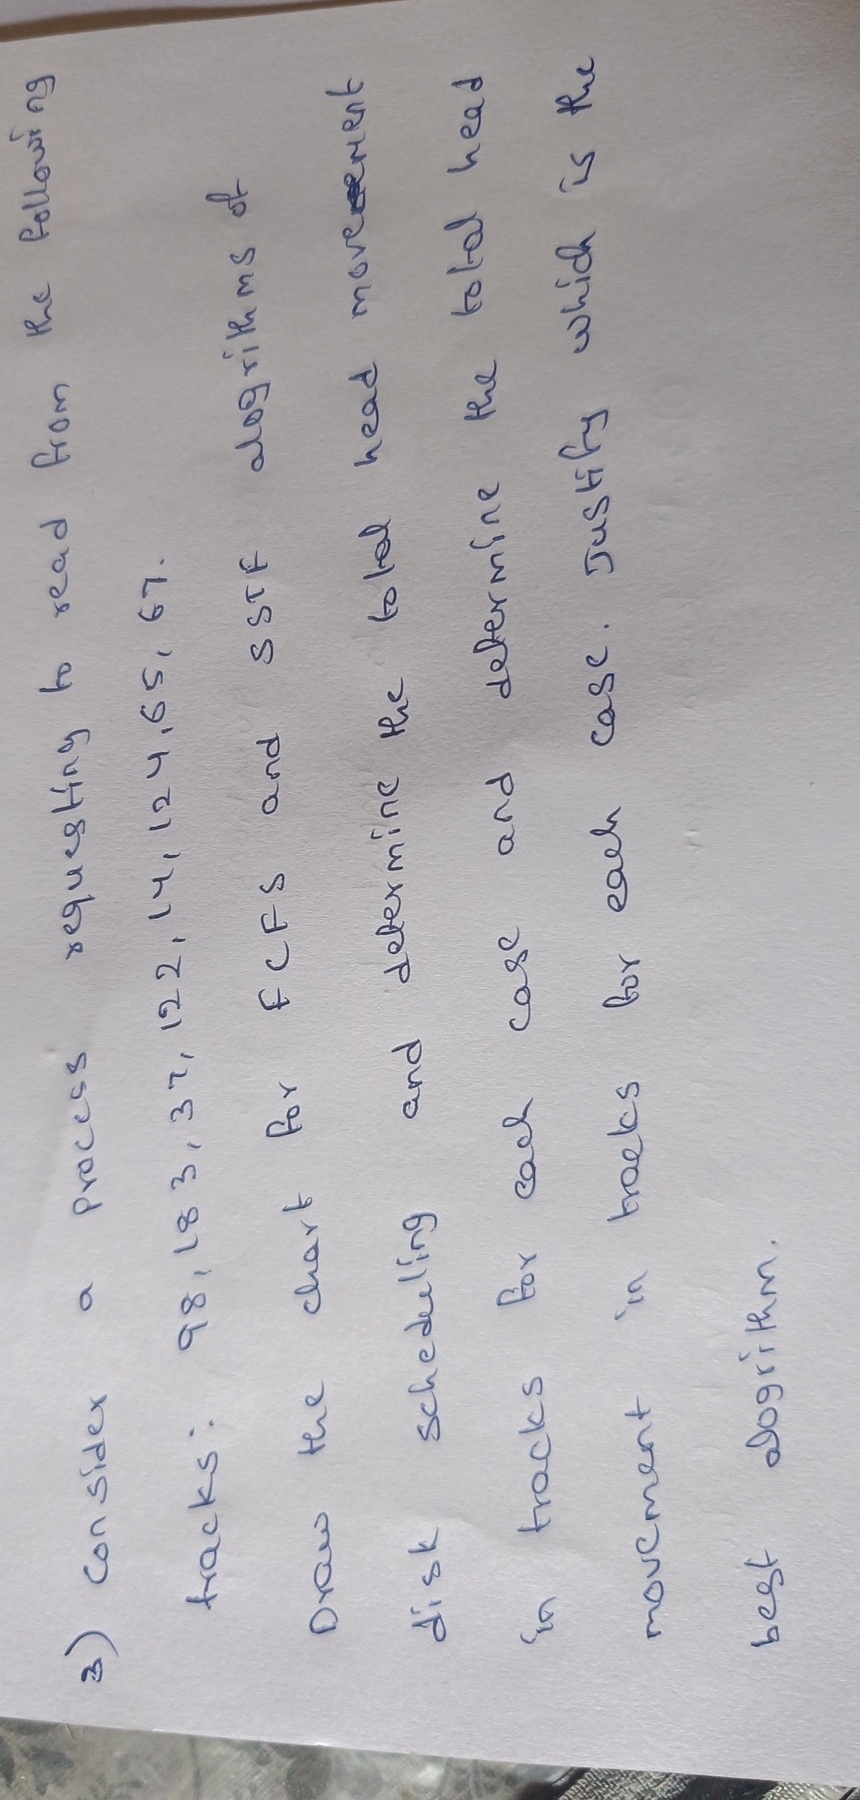 3) Consider a process requesting to read from the following
tracks: 98, 183, 37, 122, 14, 124, 65, 67.
Draw the chart for FCFS and SSTF alogrithms of
disk scheduling and determine the total head movement
in tracks for each case and determine the total head
movement in tracks for each case. Justify which is the
best alogrithm.